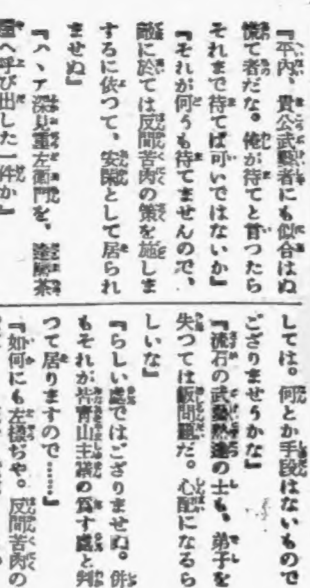 『平内、貴公武藝者にも似合はぬ
慌て者だな。俺が待てと言つたら
それまで待てば可いではないか』
『それが何うも待てませんので、
敵に於ては反間苦肉の策を施しま
するに依つて、安閑として居られ
ませぬ』
『ハヽア深見重左衞門を、達磨茶
屋へ呼び出した一件か』
しては。何とか手段はないもので
ござりませうかな』
『流石の武藝熟達の士も、弟子を
失つては飯問題だ。心配になるら
しいな』
『らしい處ではござりませぬ。併
もそれが皆青山主膳の爲す處と判
つて居りますので……』
『如何にも左樣ぢや。反間苦肉の